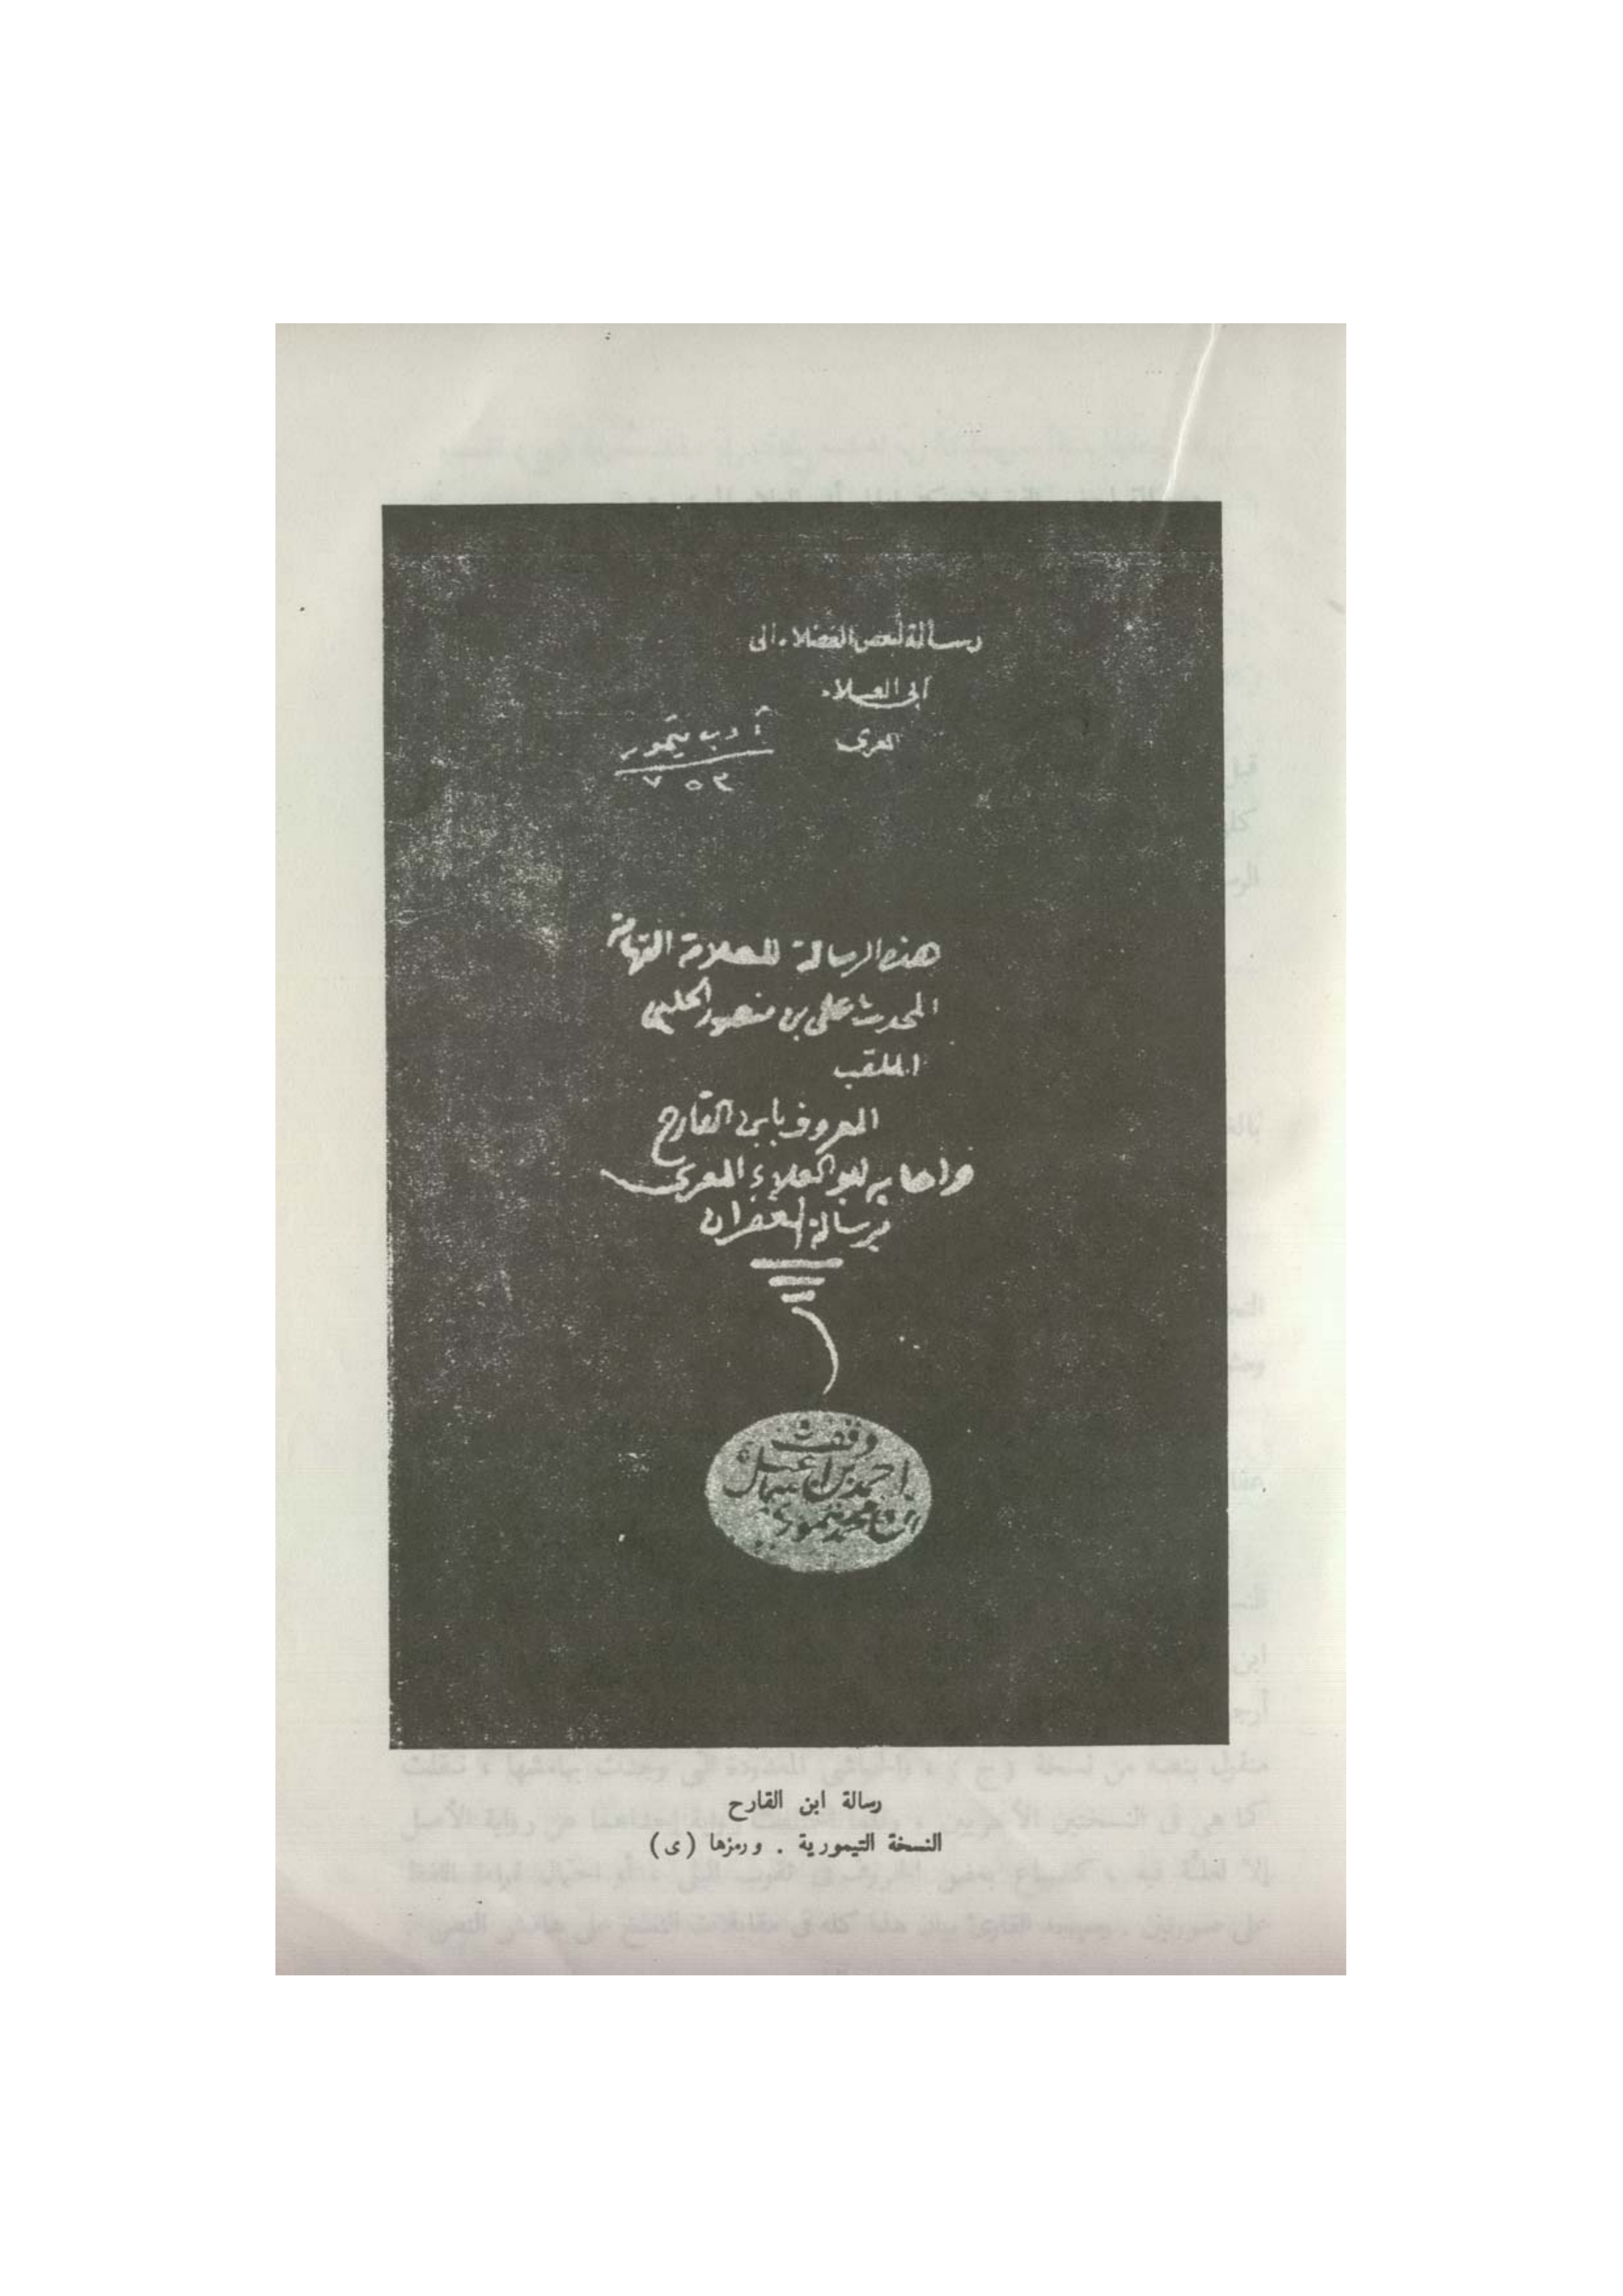 رسالة لبعض الفضلاء الى
ابى العلاء
المعرى
أدب تيمور
٧٥٣
هذه الرسالة للعلامة الفهامة
المحدث على بن منصور الحلبى
الملقب
المعروف بابن القارح
واجابه ابو العلاء المعرى
برسالة الغفران
وقف
احمد بن اسماعيل
ابن محمد تيمور
رسالة ابن القارح
النسخة التيمورية . ورمزها (ى)